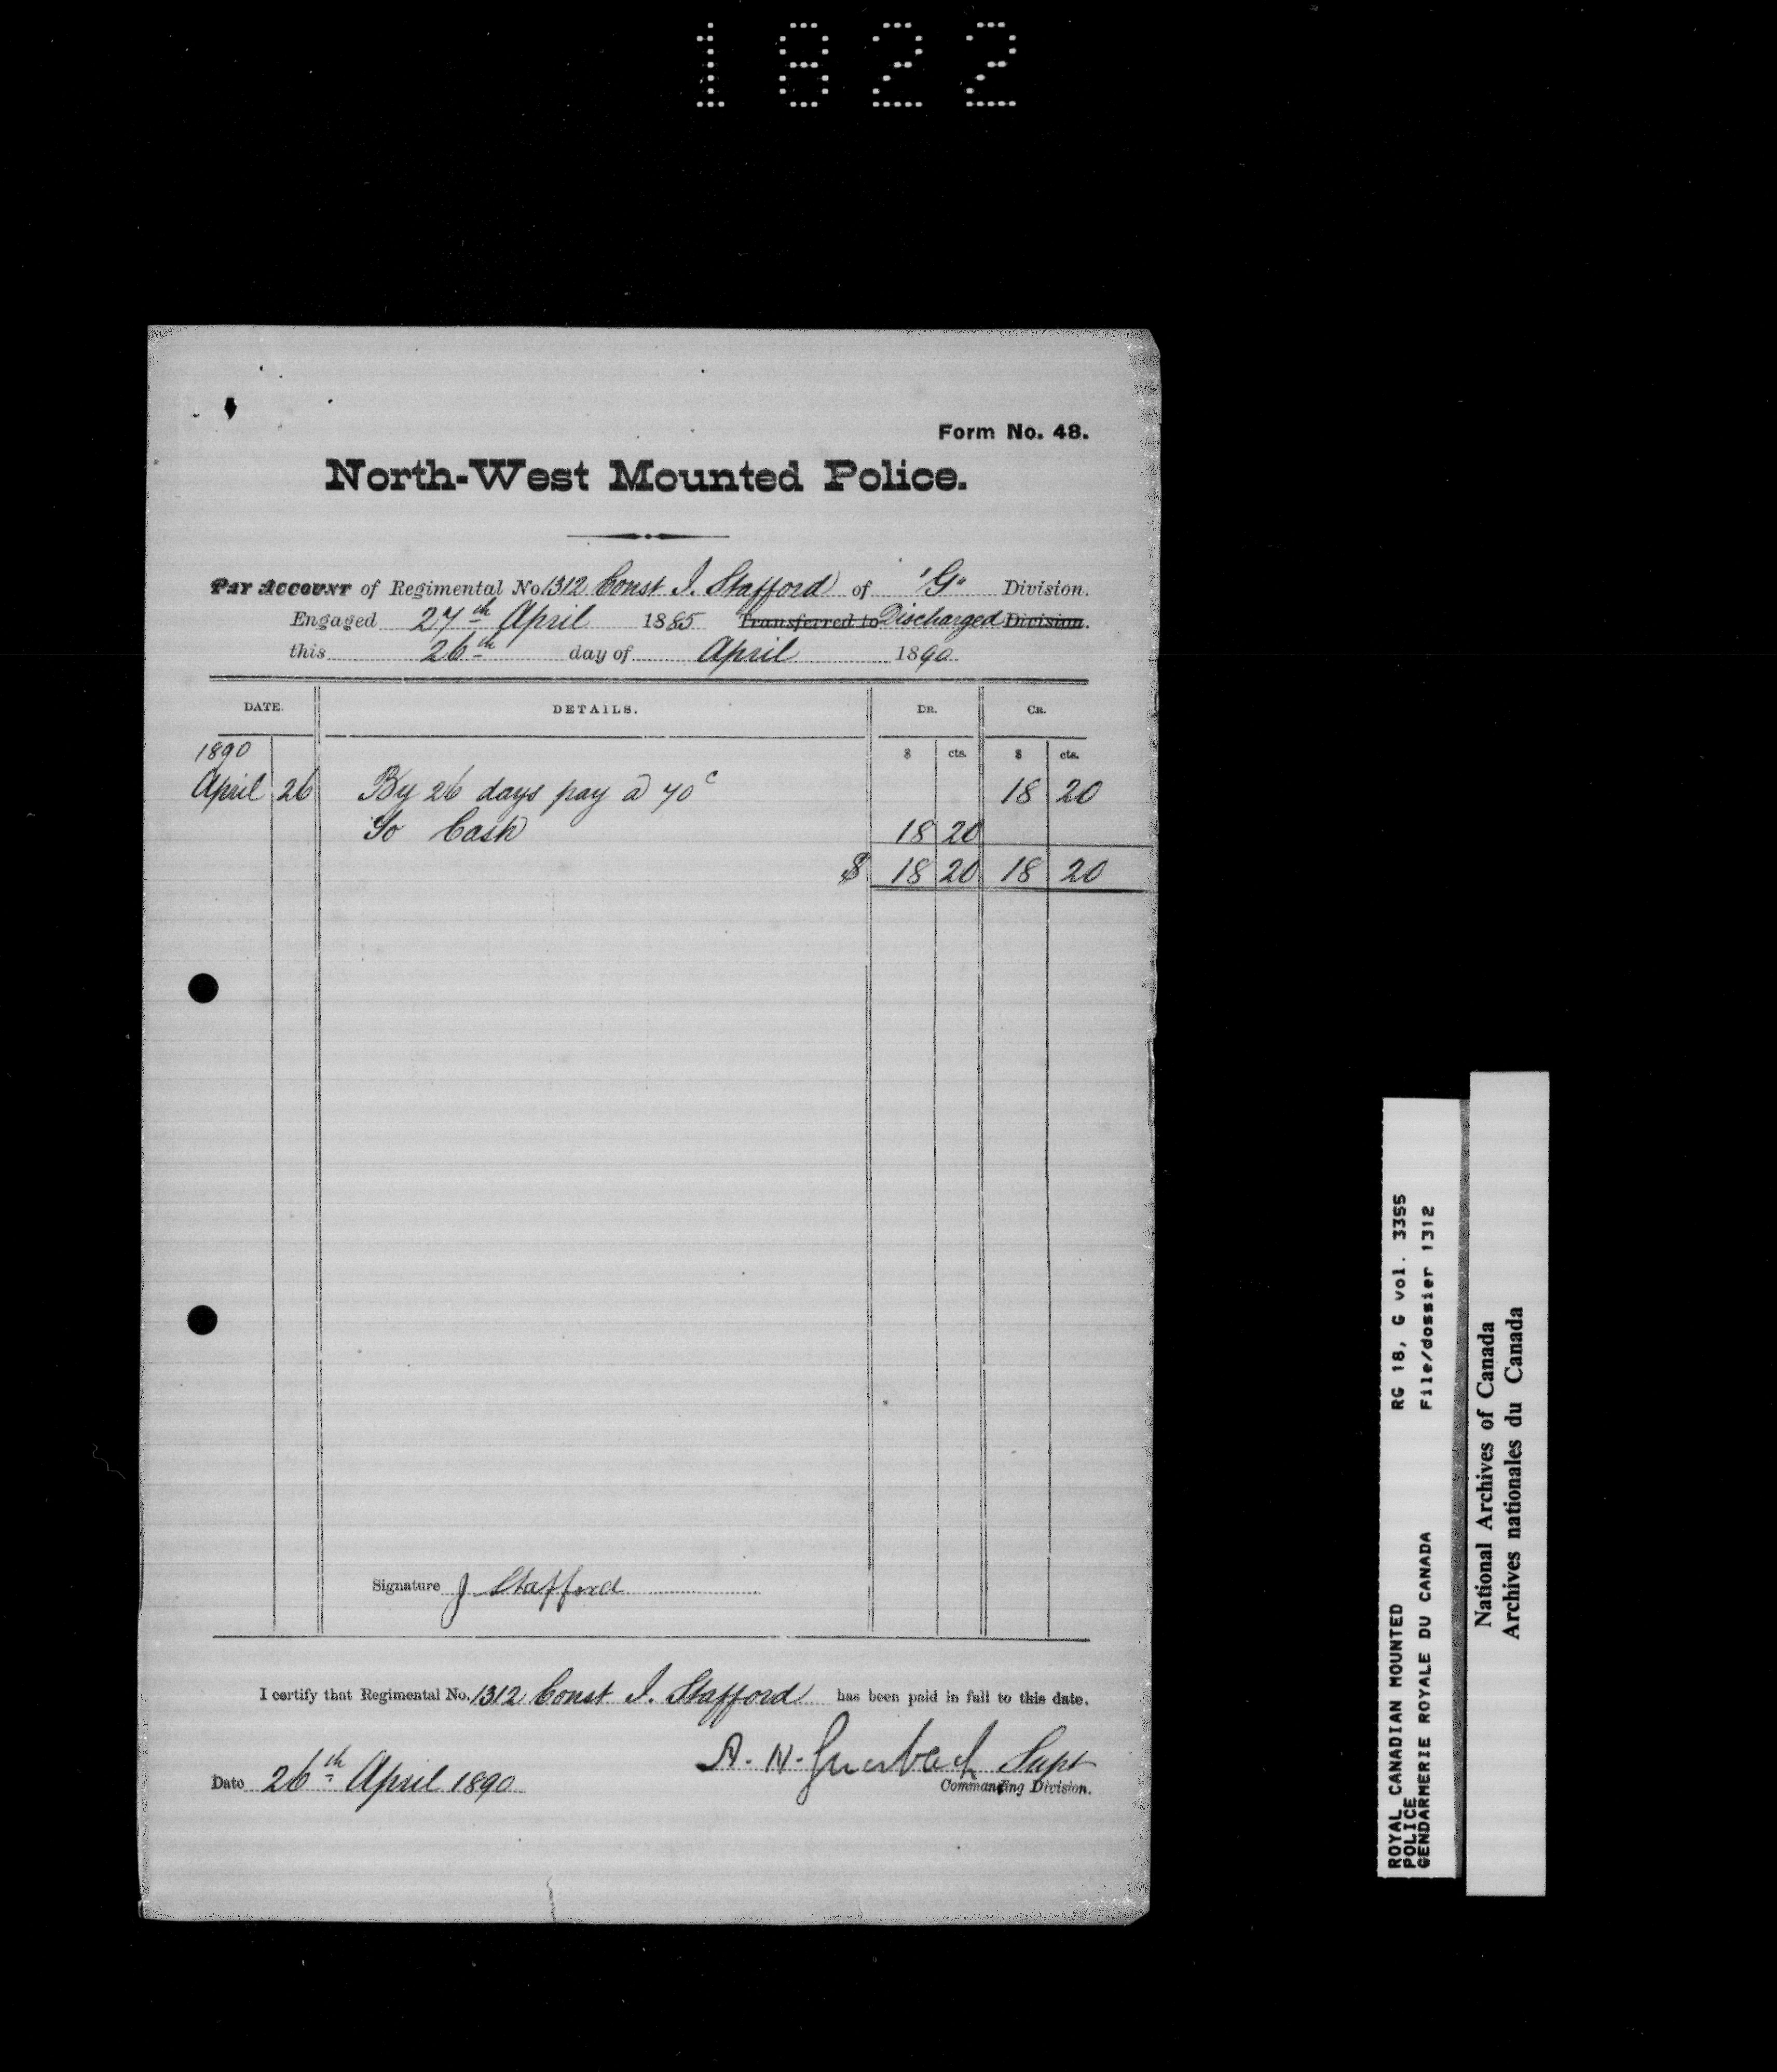 1822
Form No. 48.
North-West Mounted Police.
Pay Account of Regimental No. 1312 Const J. Stafford of "G" Division.
Engaged 27th April 1885 Transferred to Discharged Division.
this 26th day of April 1890
DATE. DETAILS. DR. CR.
1890 $ cts. $ cts.
April 26 By 26 days pay @ 70c 18 20
To Cash 18 20
$ 18 20 18 20
Signature J Stafford
I certify that Regimental No. 1312 Const J. Stafford has been paid in full to this date.
A. H. Supt
Date 26th April 1890
Commanding Division.
ROYAL CANADIAN MOUNTED RG 18, G vol. 3355
POLICE
GENDARMERIE ROYALE DU CANADA File/dossier 1312
National Archives of Canada
Archives nationales du Canada